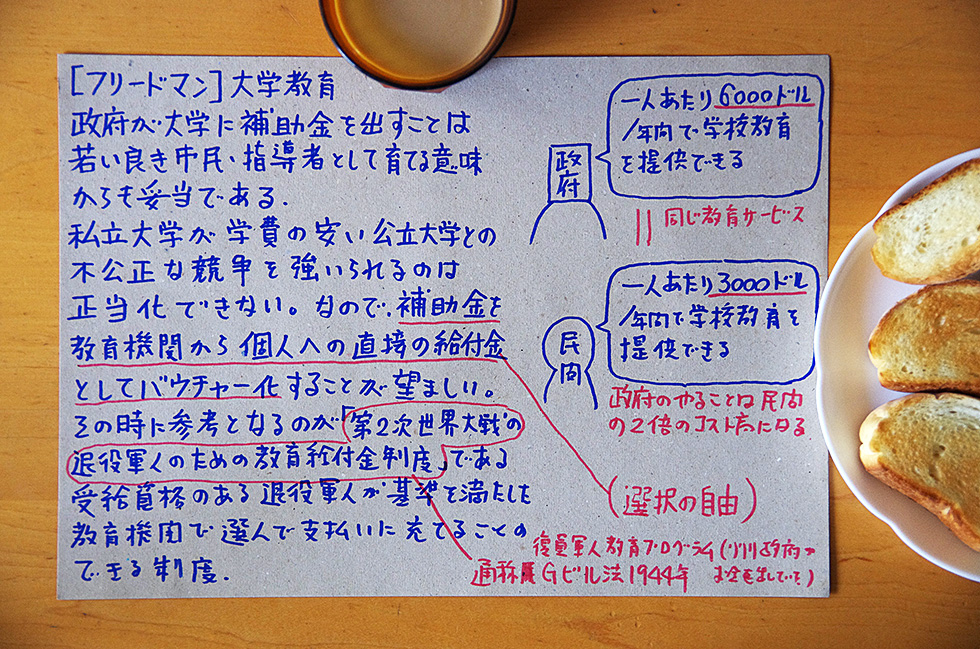 [フリードマン] 大学教育
政府が大学に補助金を出すことは
若い良き市民・指導者として育てる意味
からも妥当である.
私立大学が学費の安い公立大学との
不公正な競争を強いられるのは
正当化できない。なので、補助金を
教育機関から個人への直接の給付金
としてバウチャー化することが望ましい。
その時に参考となるのが「第2次世界大戦の
退役軍人のための教育給付金制度」である
受給資格のある退役軍人が基準を満たした
教育機関で選んで支払いに充てることの
できる制度.
一人あたり6000ドル
/年間で学校教育
を提供できる
政府
同じ教育サービス
一人あたり3000ドル
/年間で学校教育を
提供できる
民間
政府のやることは民間
の2倍のコスト高になる
(選択の自由)
復員軍人教育プログラム(
通称 Gビル法1944年